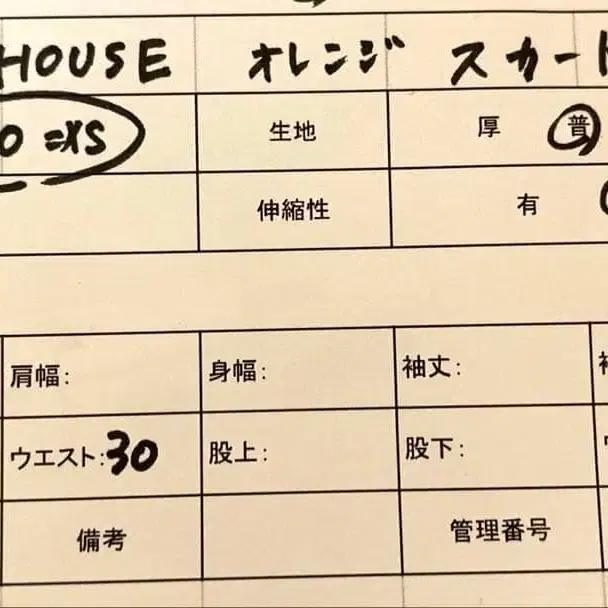 HOUSE オレンジ スカート
0 =XS 生地 厚 普
伸縮性 有
肩幅: 身幅: 袖丈:
ウエスト:30 股上: 股下:
備考 管理番号